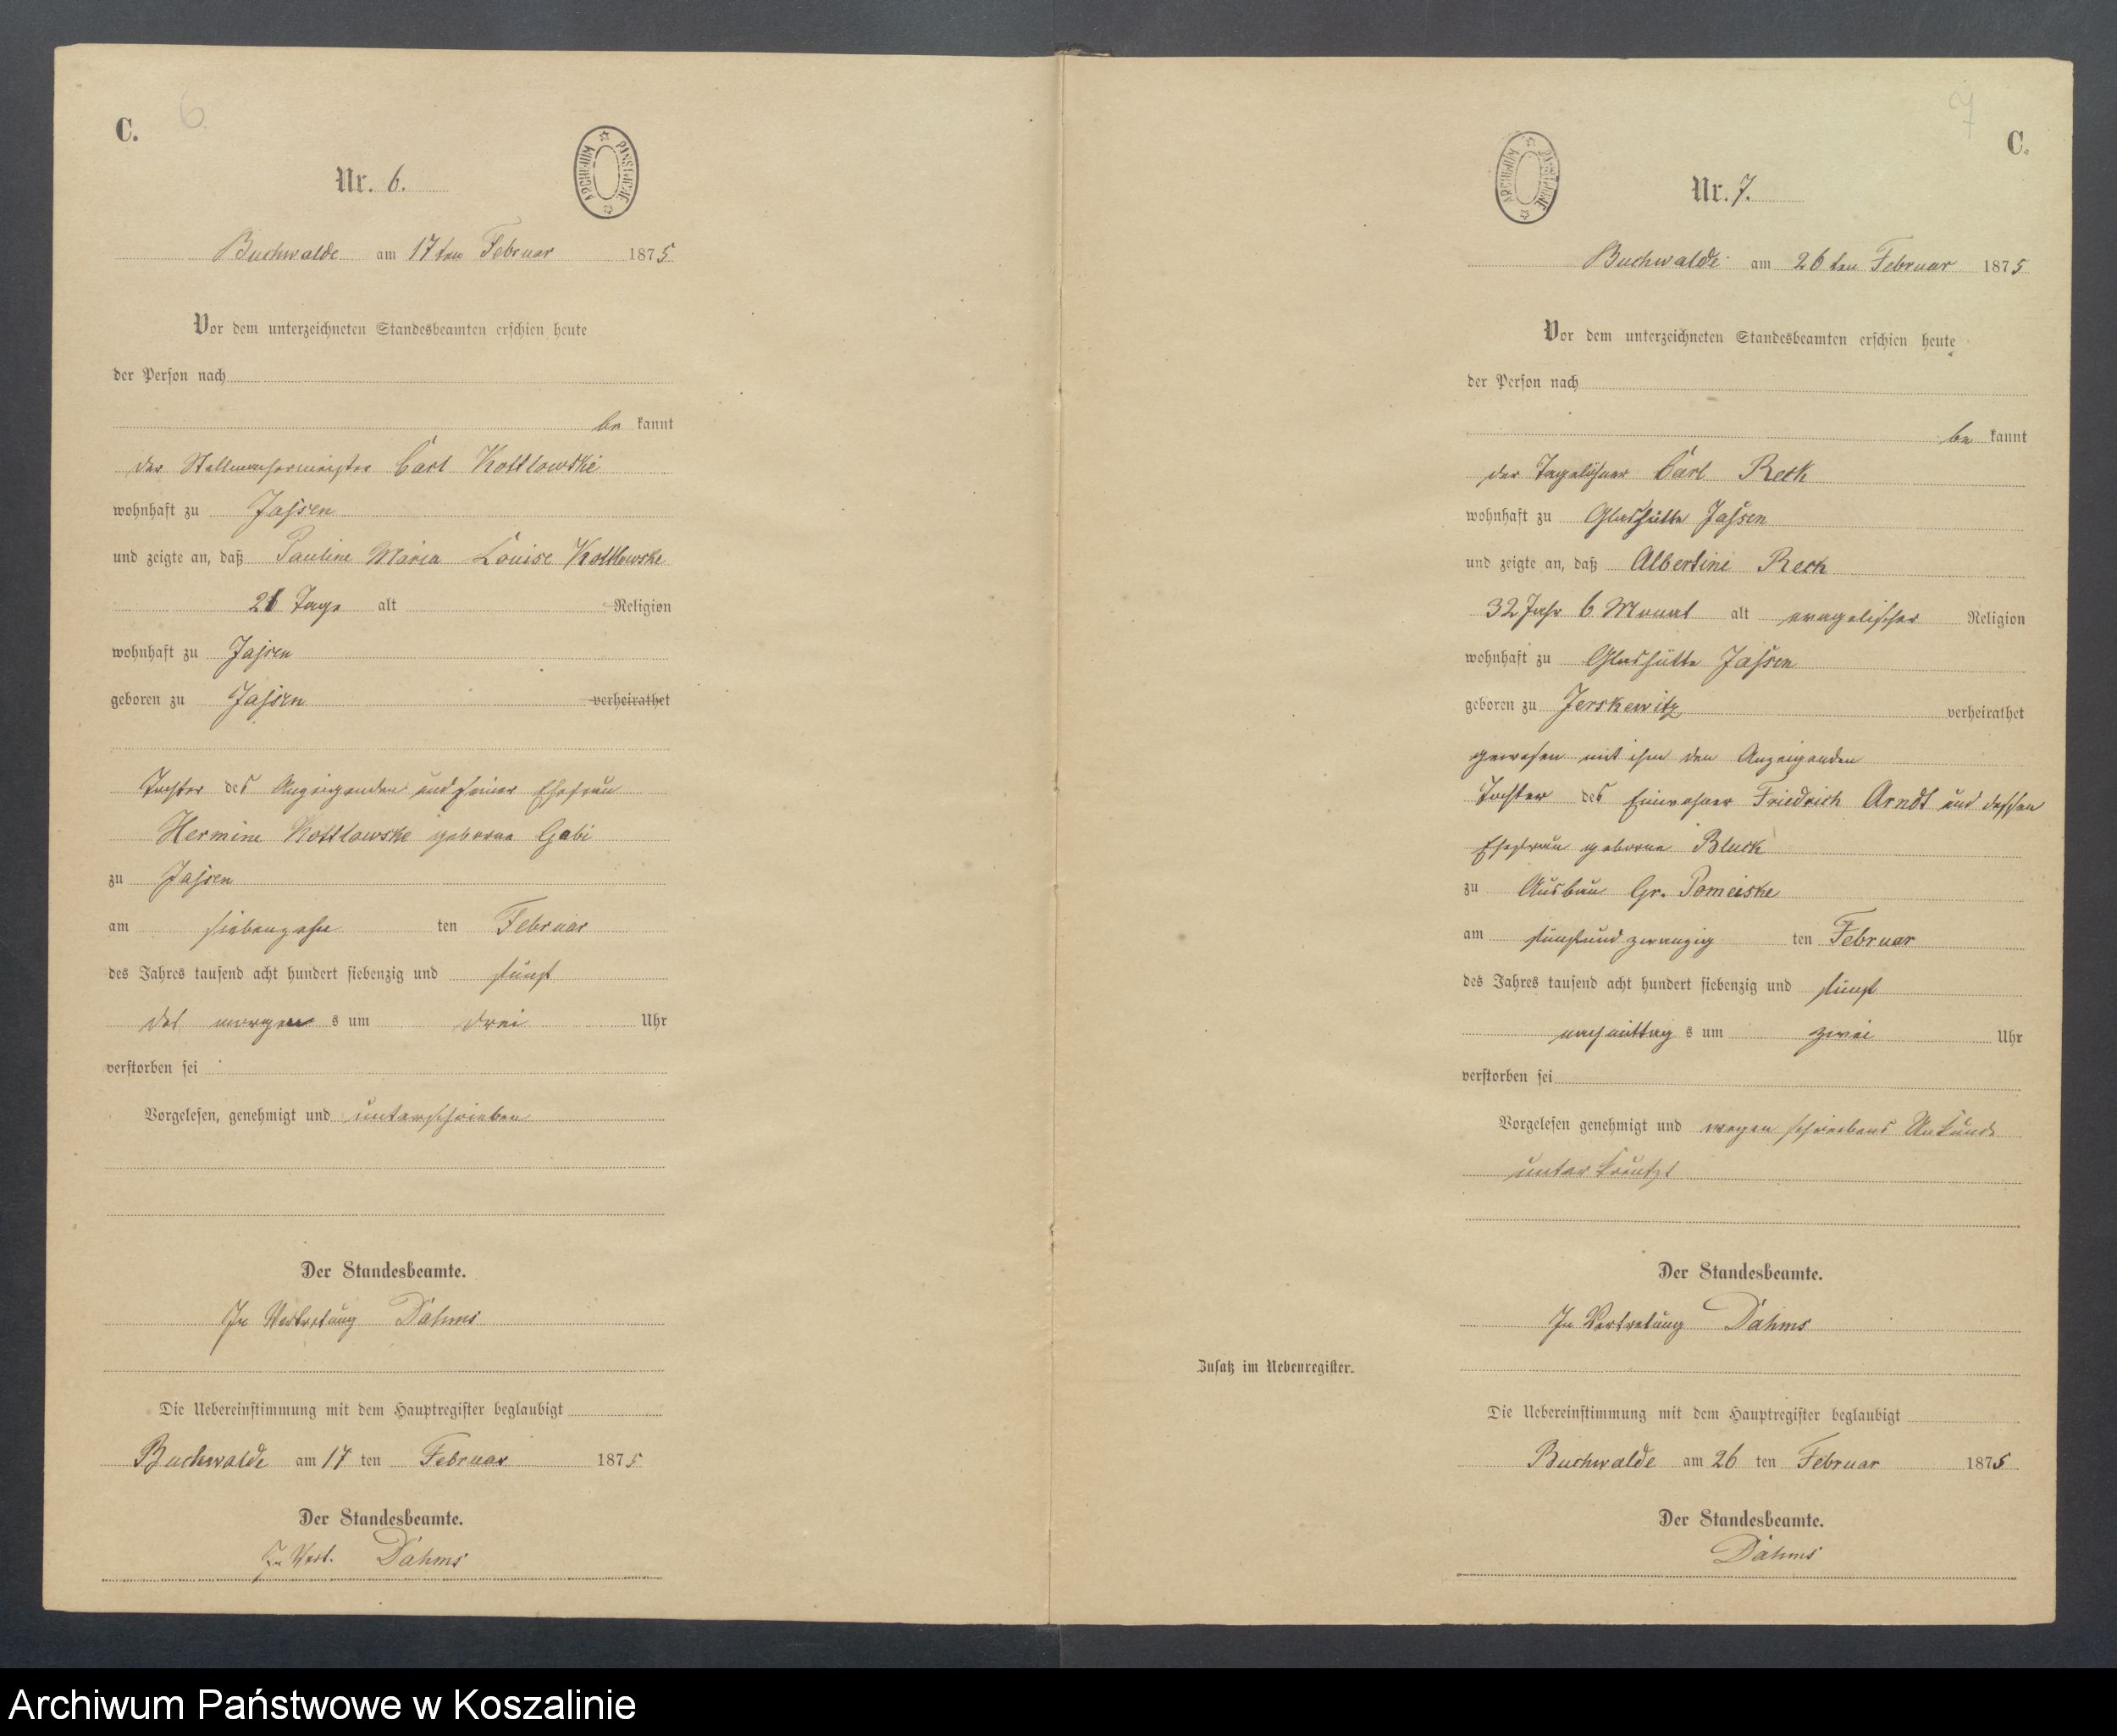 C.
6.
Nr. 6.
ARCHIWUM PAŃSTWOWE
Buchwalde am 17ten Februar 1875
Vor dem unterzeichneten Standesbeamten erschien heute
der Person nach
be kannt
der Stellmachermeister Carl Kottlowske
wohnhaft zu Jassen
und zeigte an, daß Pauline Maria Louise Kottlowske
21 Tage alt Religion
wohnhaft zu Jassen
geboren zu Jassen verheirathet
Tochter des Anzeigenden und seiner Ehefrau
Hermine Kottlowske geborne Gabi
zu Jassen
am siebenzehn ten Februar
des Jahres tausend acht hundert siebenzig und fünf
des morgen s um drei Uhr
verstorben sei
Vorgelesen, genehmigt und unterschrieben
Der Standesbeamte.
In Vertretung Dahms
Die Uebereinstimmung mit dem Hauptregister beglaubigt
Buchwalde am 17 ten Februar 1875
Der Standesbeamte.
In Vert. Dahms
7
C.
Nr. 7.
ARCHIWUM PAŃSTWOWE
Buchwalde am 26ten Februar 1875
Vor dem unterzeichneten Standesbeamten erschien heute
der Person nach
be kannt
der Tagelöhner Carl Reck
wohnhaft zu Glashütte Jassen
und zeigte an, daß Albertine Reck
32 Jahr 6 Monat alt evagelischer Religion
wohnhaft zu Glashütte Jassen
geboren zu Jerskewitz verheirathet
gewesen mit ihm den Anzeigenden
Tochter des Einwohner Friedrich Arndt und dessen
Ehefrau geborne Bluck
zu Ausbau Gr. Pomeiske
am fünfund zwanzig ten Februar
des Jahres tausend acht hundert siebenzig und fünf
nachmittag s um zwei Uhr
verstorben sei
Vorgelesen genehmigt und wegen schreibens Unkunde
unterkreutzt
Der Standesbeamte.
In Vertretung Dahms
Zusatz im Nebenregister.
Die Uebereinstimmung mit dem Hauptregister beglaubigt
Buchwalde am 26 ten Februar 1875
Der Standesbeamte.
Dahms
Archiwum Państwowe w Koszalinie